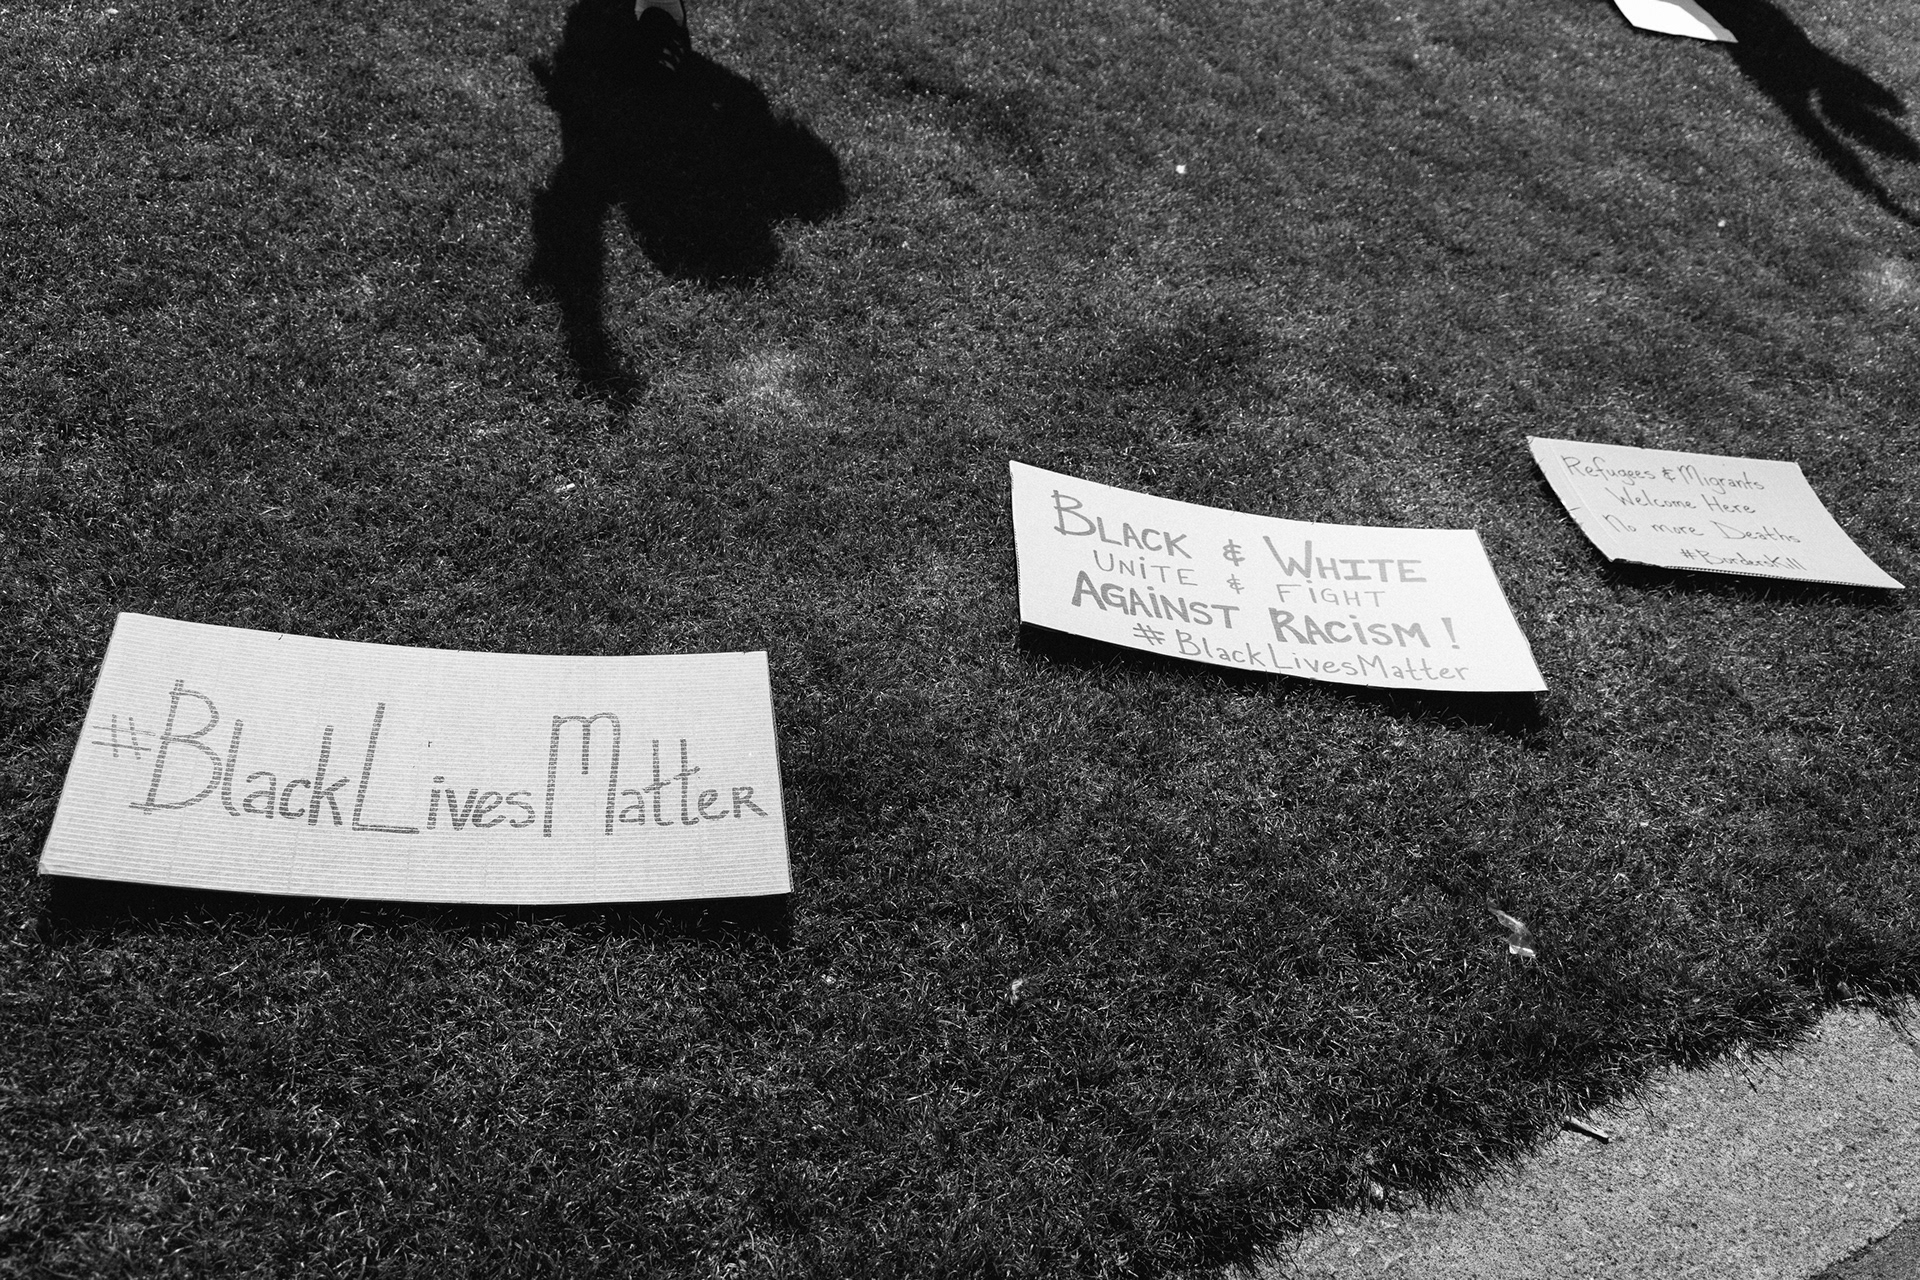 #BlackLivesMatter
BLACK & WHITE
UNiTE & FiGHT
AGAiNST RACiSM!
#BlackLivesMatter
Refugees & Migrants
Welcome Here
No more Deaths
#BordersKill